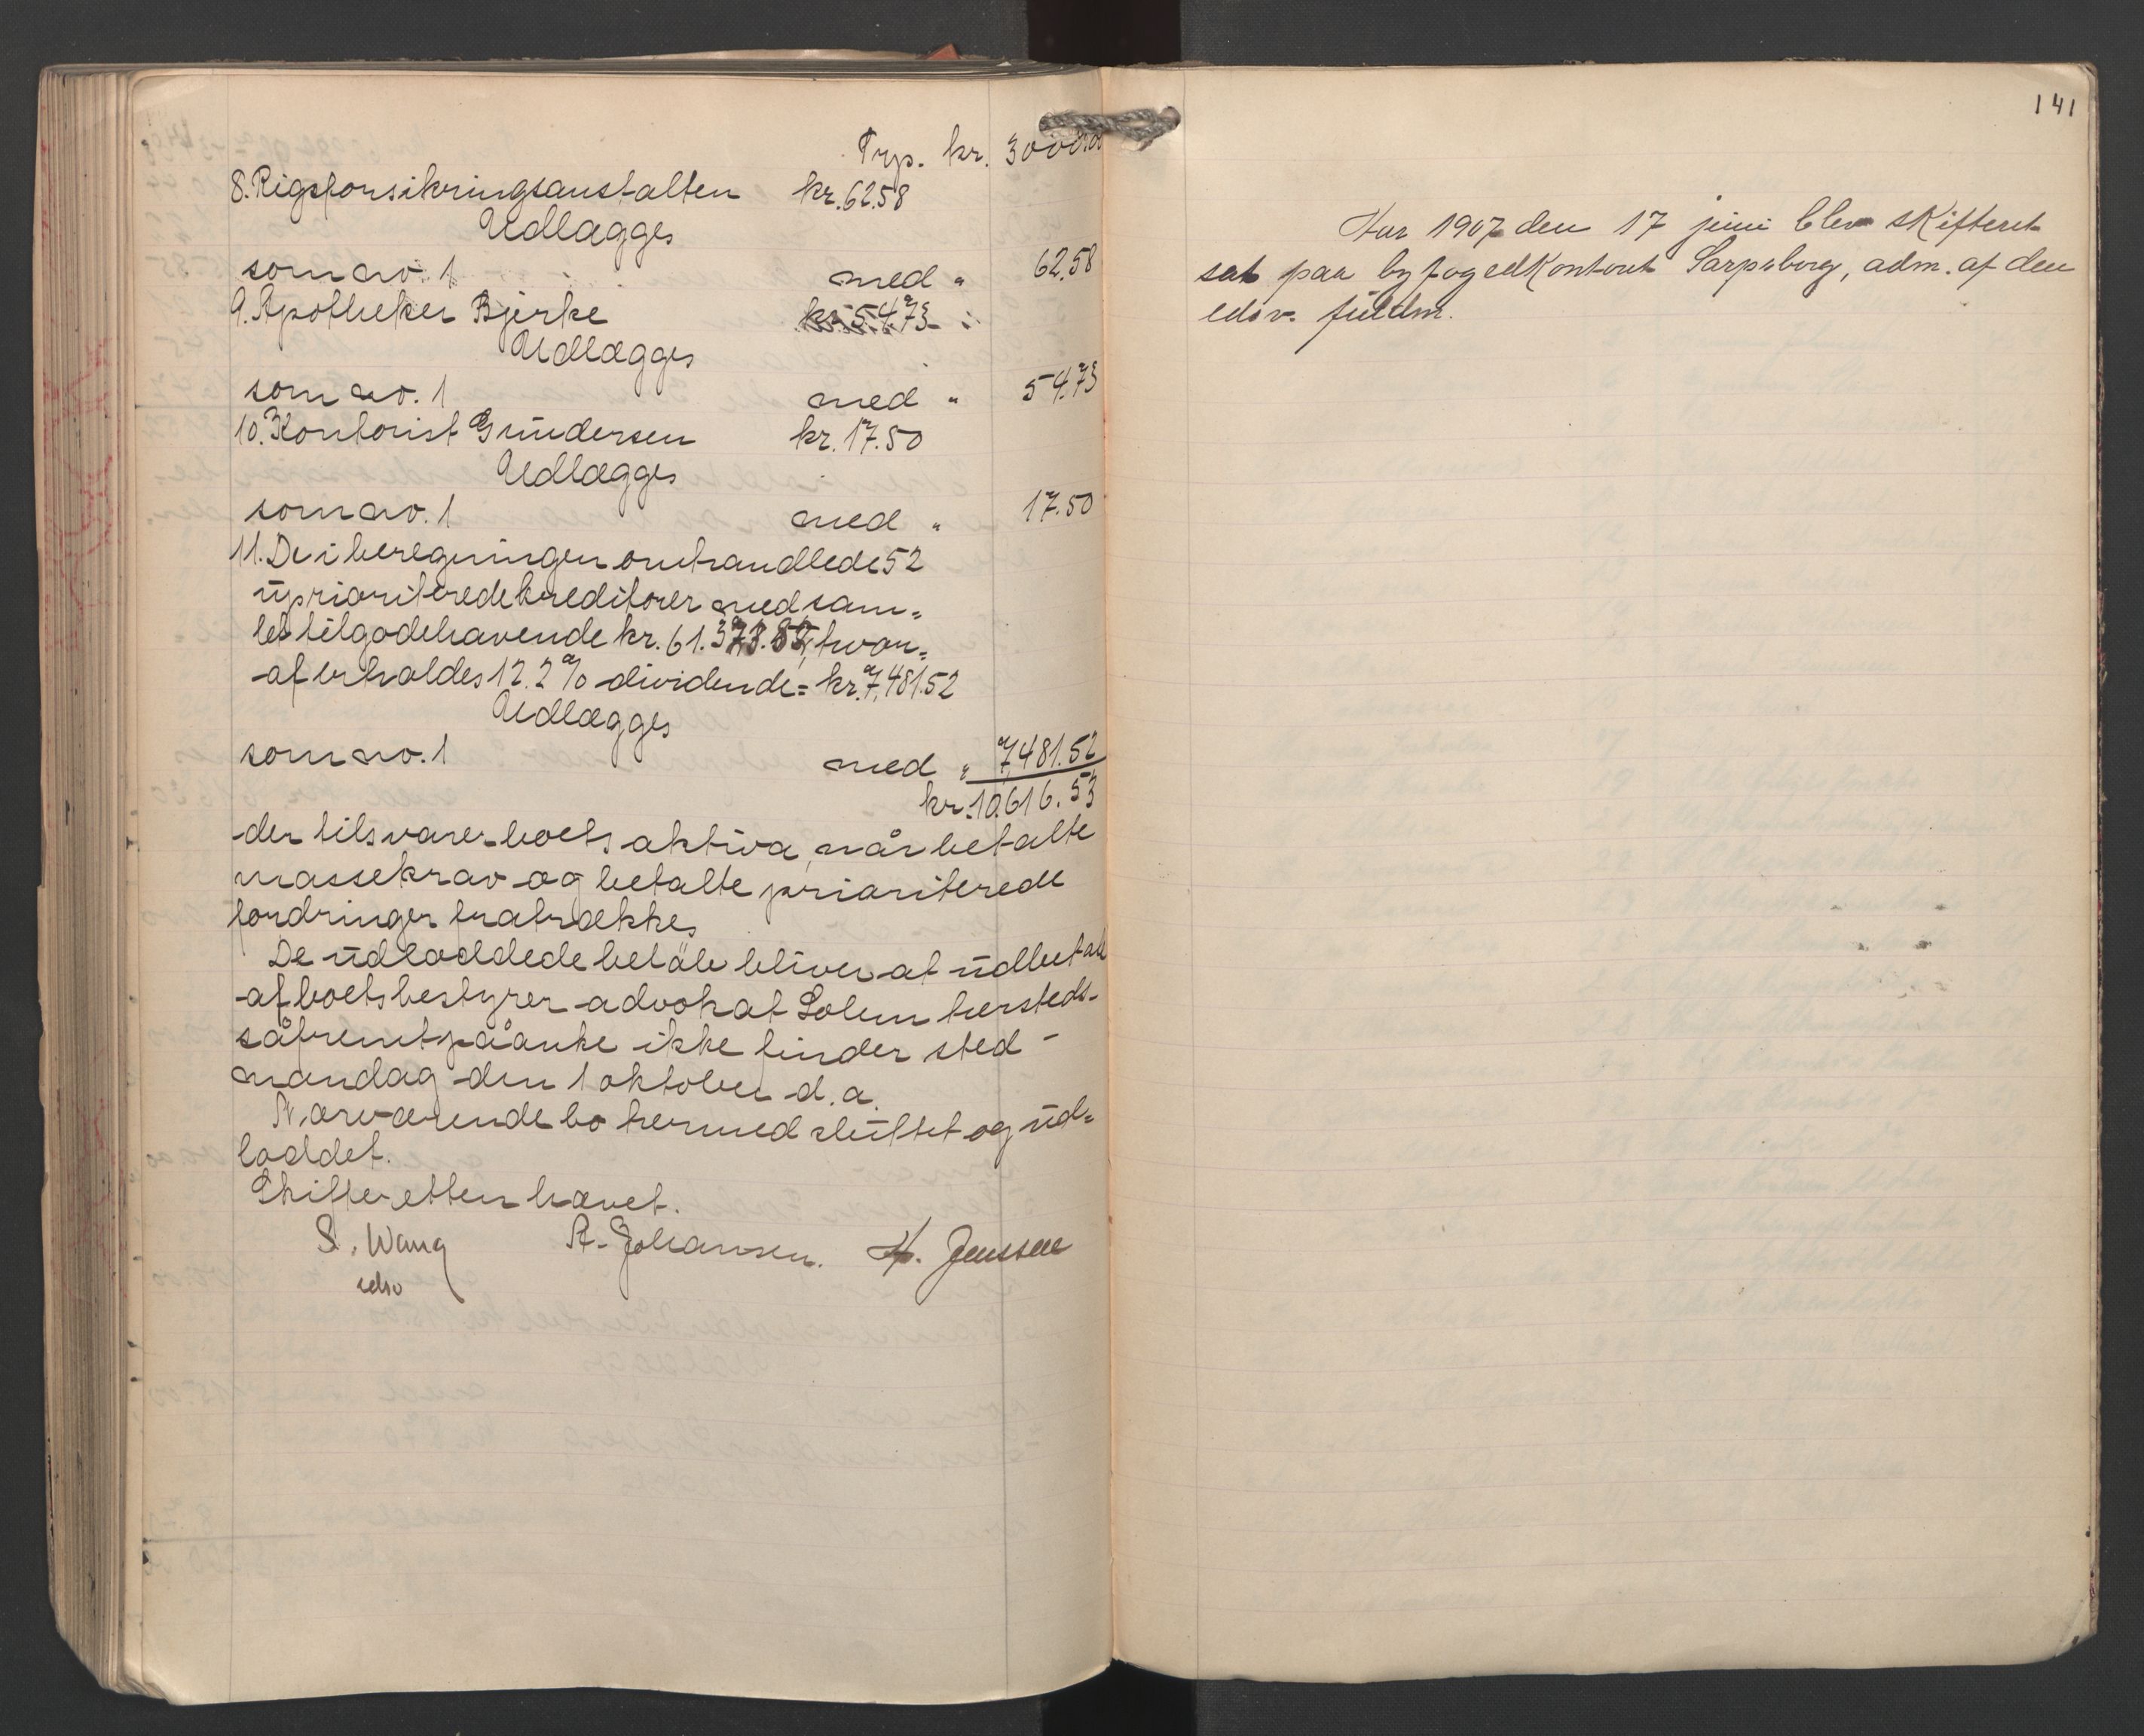 Trp. kr. 3000.20
8. Rigsforsikringsanstalten kr. 62.58
Udlægges
som no. 1 med " 62.58
9. Apotheker Bjerke kr. 54.73
Udlægges
som no. 1 med " 54.73
10. Kontorist Gundersen kr. 17.50
Udlægges
som no. 1 med " 17.50
11. De i beregningen omhandlede 52
uprioriterede kreditorer med sam=
let tilgodehavende kr. 61. hvor=
af erholdes 12.2 % dividende = kr. 7,481.52
Udlægges
som no. 1 med " 7,481.52
kr. 10,616.53
der tilsvarer boets aktiva, når betalte
massekrav og betalte prioriterede
fordringer fratrækkes
De udloddede beløb bliver at udbetale
af boets bestyrer advokat Solem hersteds -
såfremt påanke ikke finder sted -
mandag den 1 oktober d.a.
Nærværende bo hermed sluttet og ud=
loddet.
Skifteretten hævet.
S. Wang R. Johansen. H. Jenssen
edsv
141
Aar 1907 den 17 juni blev skifteret
sat paa byfogedkontoret Sarpsborg, adm. af den
edsv. fuldm.